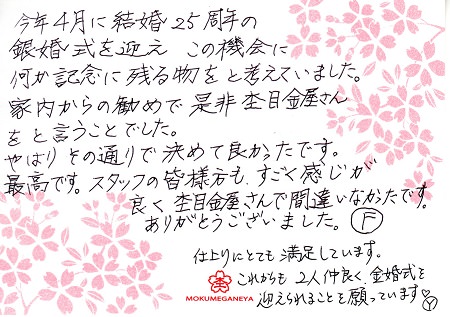 今年4月に結婚25周年の
銀婚式を迎え この機会に
何か記念に残る物をと考えていました。
家内からの勧めで是非杢目金屋さん
をと言うことでした。
やはりその通りで決めて良かったです。
最高です。スタッフの皆様方も、すごく感じが
良く杢目金屋さんで間違いなかったです。
ありがとうございました。Ⓕ
仕上りにとても満足しています。
これからも2人仲良く、金婚式を
迎えられることを願っています♡Ⓨ
MOKUMEGANEYA